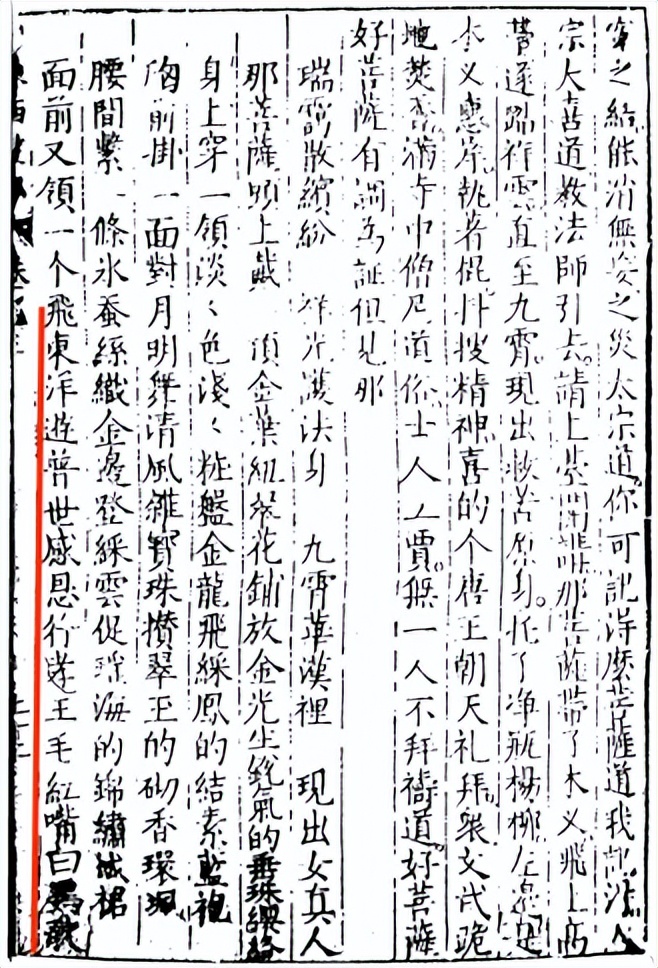 寃之結能消無妄之災太宗道你可記得麼菩薩道我記
宗大喜道教法師引去請上臺開講那菩薩帶了木义飛上高
臺遂踏祥雲直至九霄現出救苦原身托了净瓶楊柳左邊是
木义惠岸執着棍抖搜精神喜的个唐王朝天礼拜衆文武跪
地焚香滿寺中僧尼道俗士人工賈無一人不拜禱道好菩薩
好菩薩有詞為証但見那
瑞靄散繽紛　祥光護法身　九霄華漢裡　現出女真人
那菩薩頭上戴　頂金葉紐翠花鋪放金光生銳氣的垂珠纓絡
身上穿一領淡々色淺々粧盤金龍飛綵鳳的結素藍袍
胸前掛一面對月明舞清風雜寳珠攢翠玉的砌香環珮
腰間繫一條氷蚕絲織金邊登綵雲促瑶海的錦繡絨裙
面前又領一个飛東洋遊普世感恩行孝王毛紅嘴白鸚歌